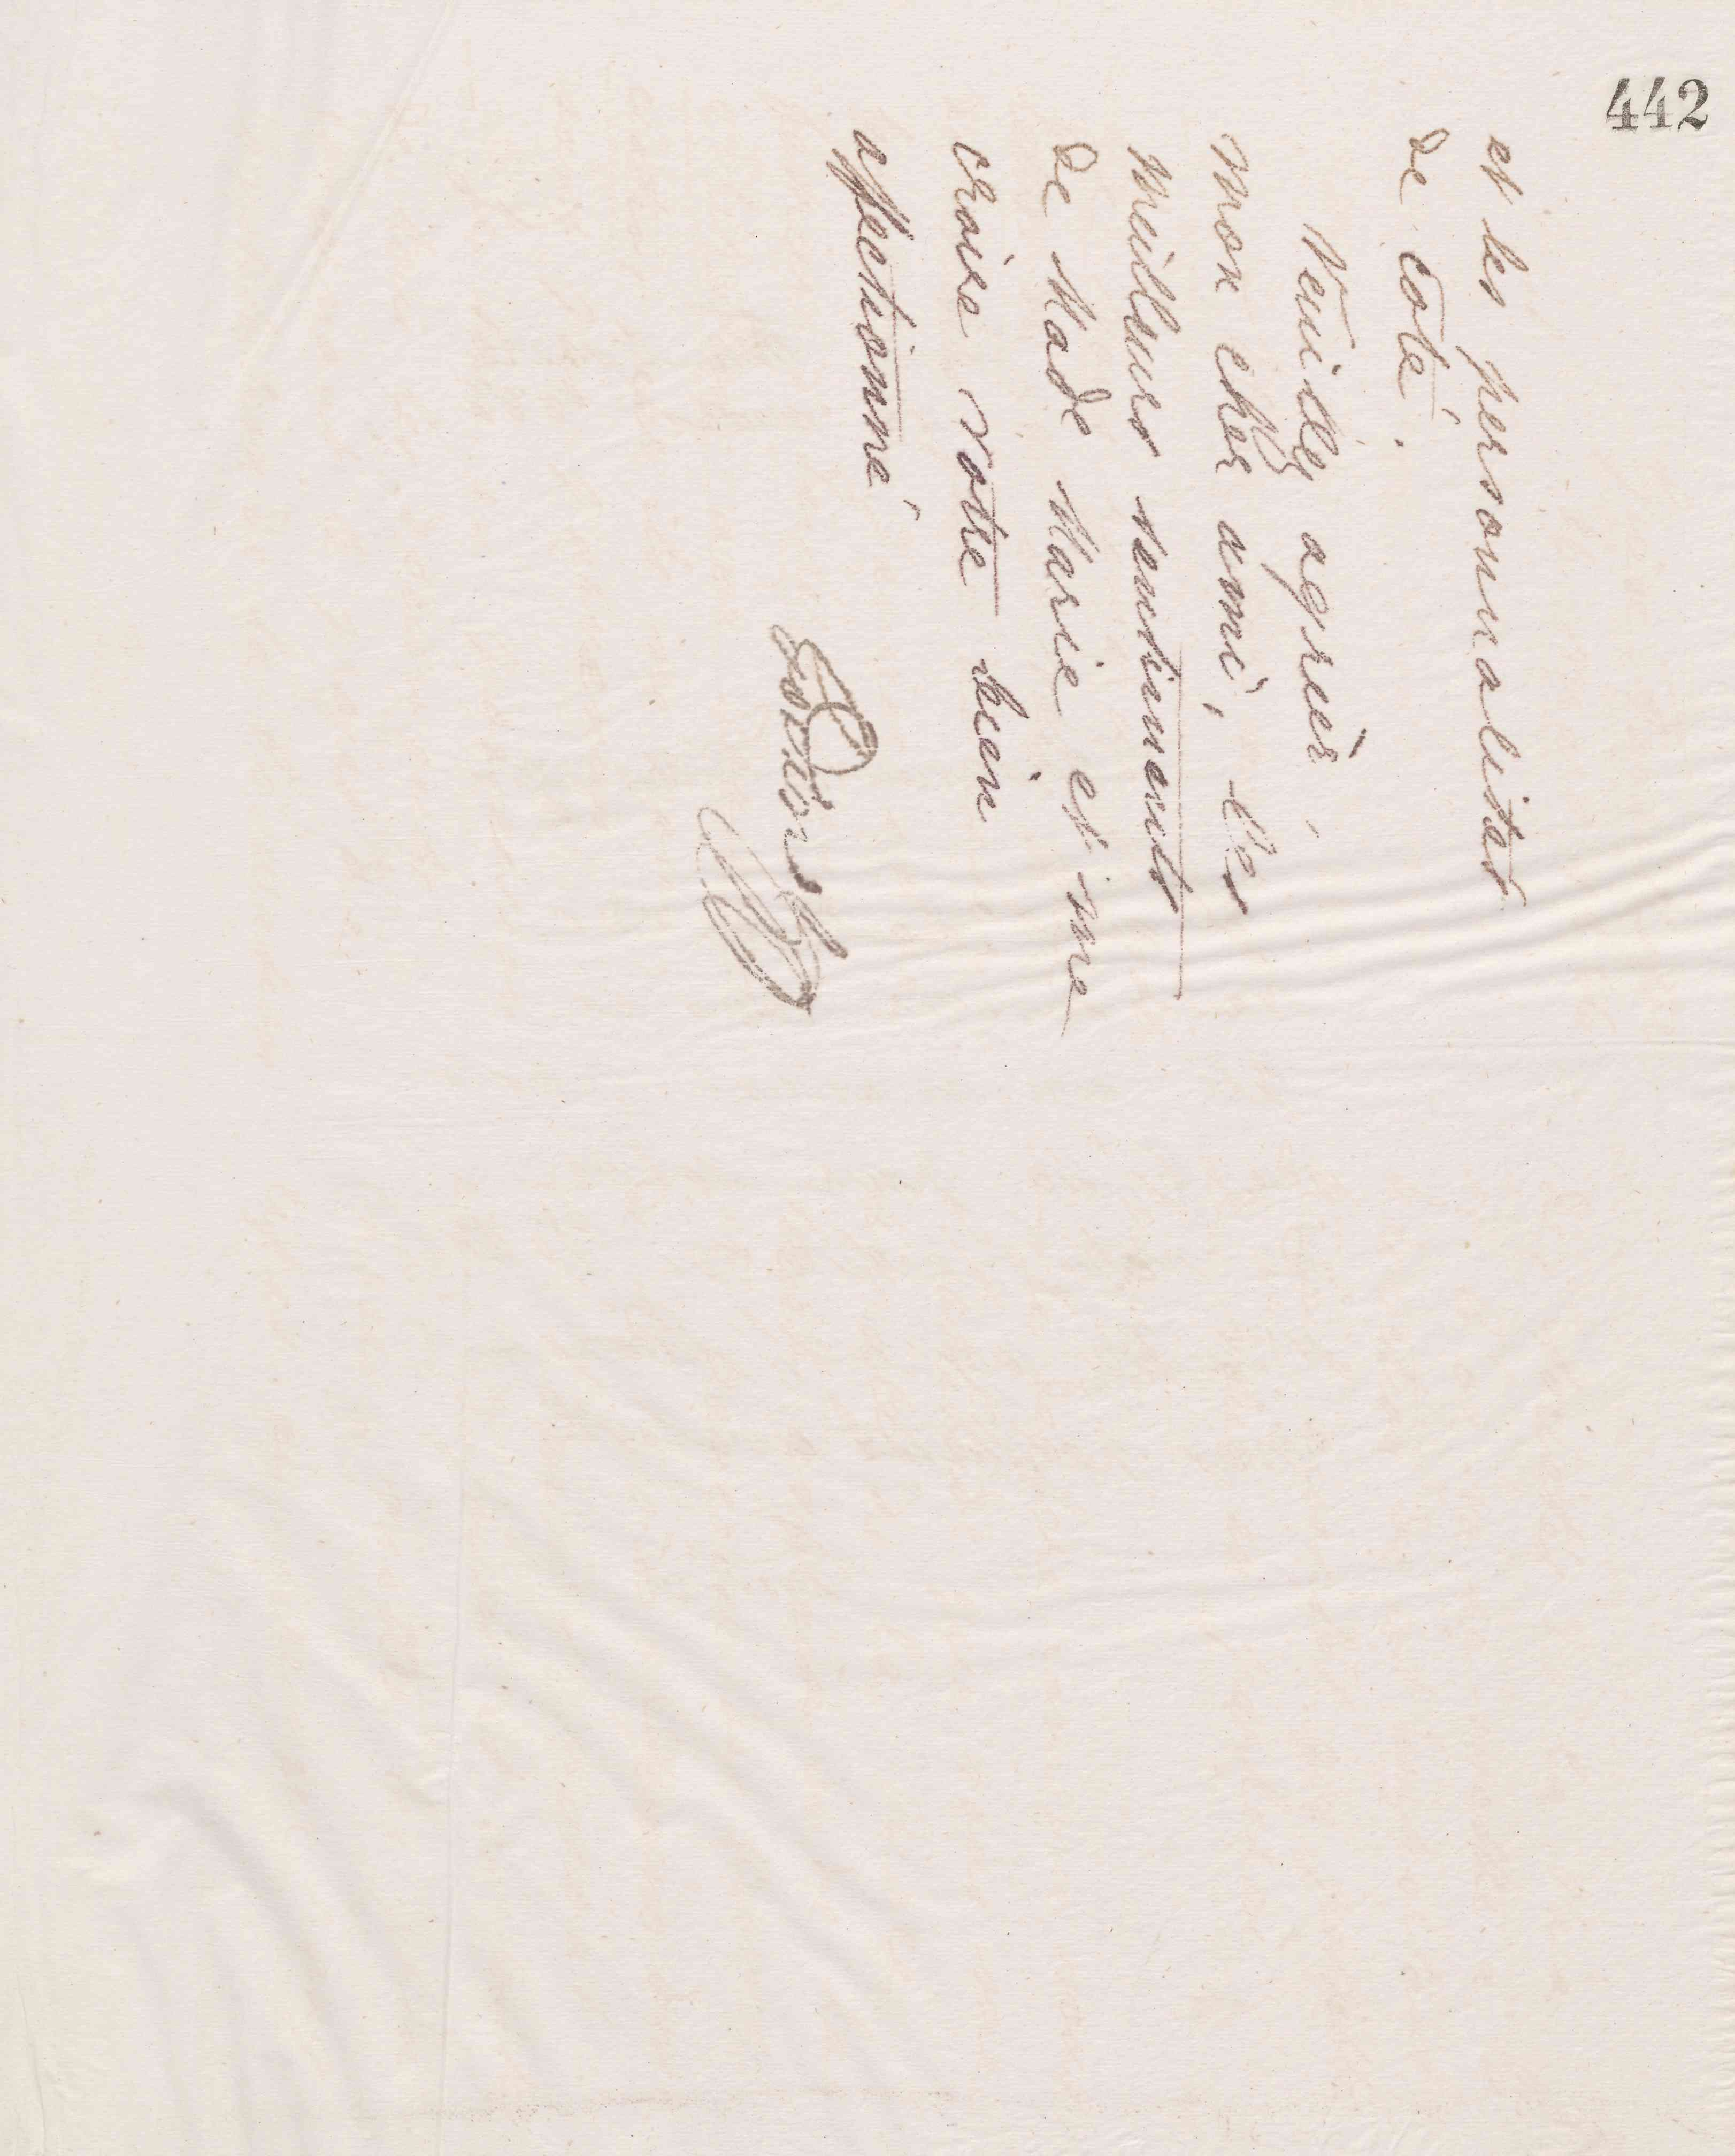 442
et les personnalités
de côté.
Veuillez agréer,
mon cher ami, les
meilleurs sentiments
de Made Marie et me
croire votre bien
affectionné
Godin